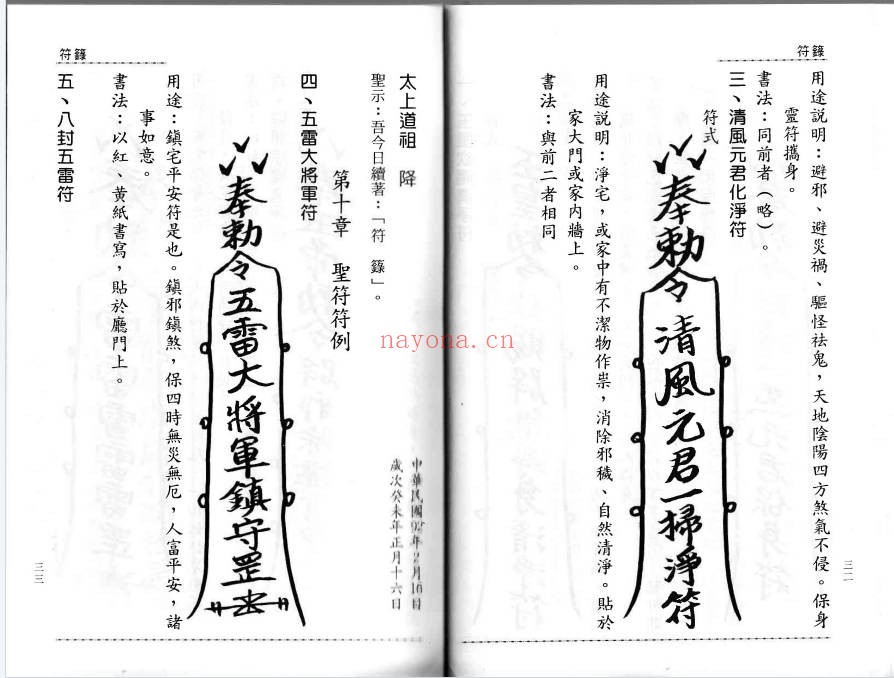 符籙
用途說明：避邪、避災禍、驅怪祛鬼，天地陰陽四方煞氣不侵。保身
靈符攜身。
書法：同前者（略）。
三、清風元君化淨符
符式
奉勅令清風元君一掃淨符
用途說明：淨宅，或家中有不潔物作祟，消除邪穢、自然清淨。貼於
家大門或家內牆上。
書法：與前二者相同
三二
中華民國92年2月16日
歲次癸未年正月十六日
符籙
太上道祖 降
聖示：吾今日續著：「符 籙」。
第十章 聖符符例
四、五雷大將軍符
奉勅令五雷大將軍鎮守罡
用途：鎮宅平安符是也。鎮邪鎮煞，保四時無災無厄，人富平安，諸
事如意。
書法：以紅、黃紙書寫，貼於廳門上。
五、八封五雷符
三三
nayona.cn